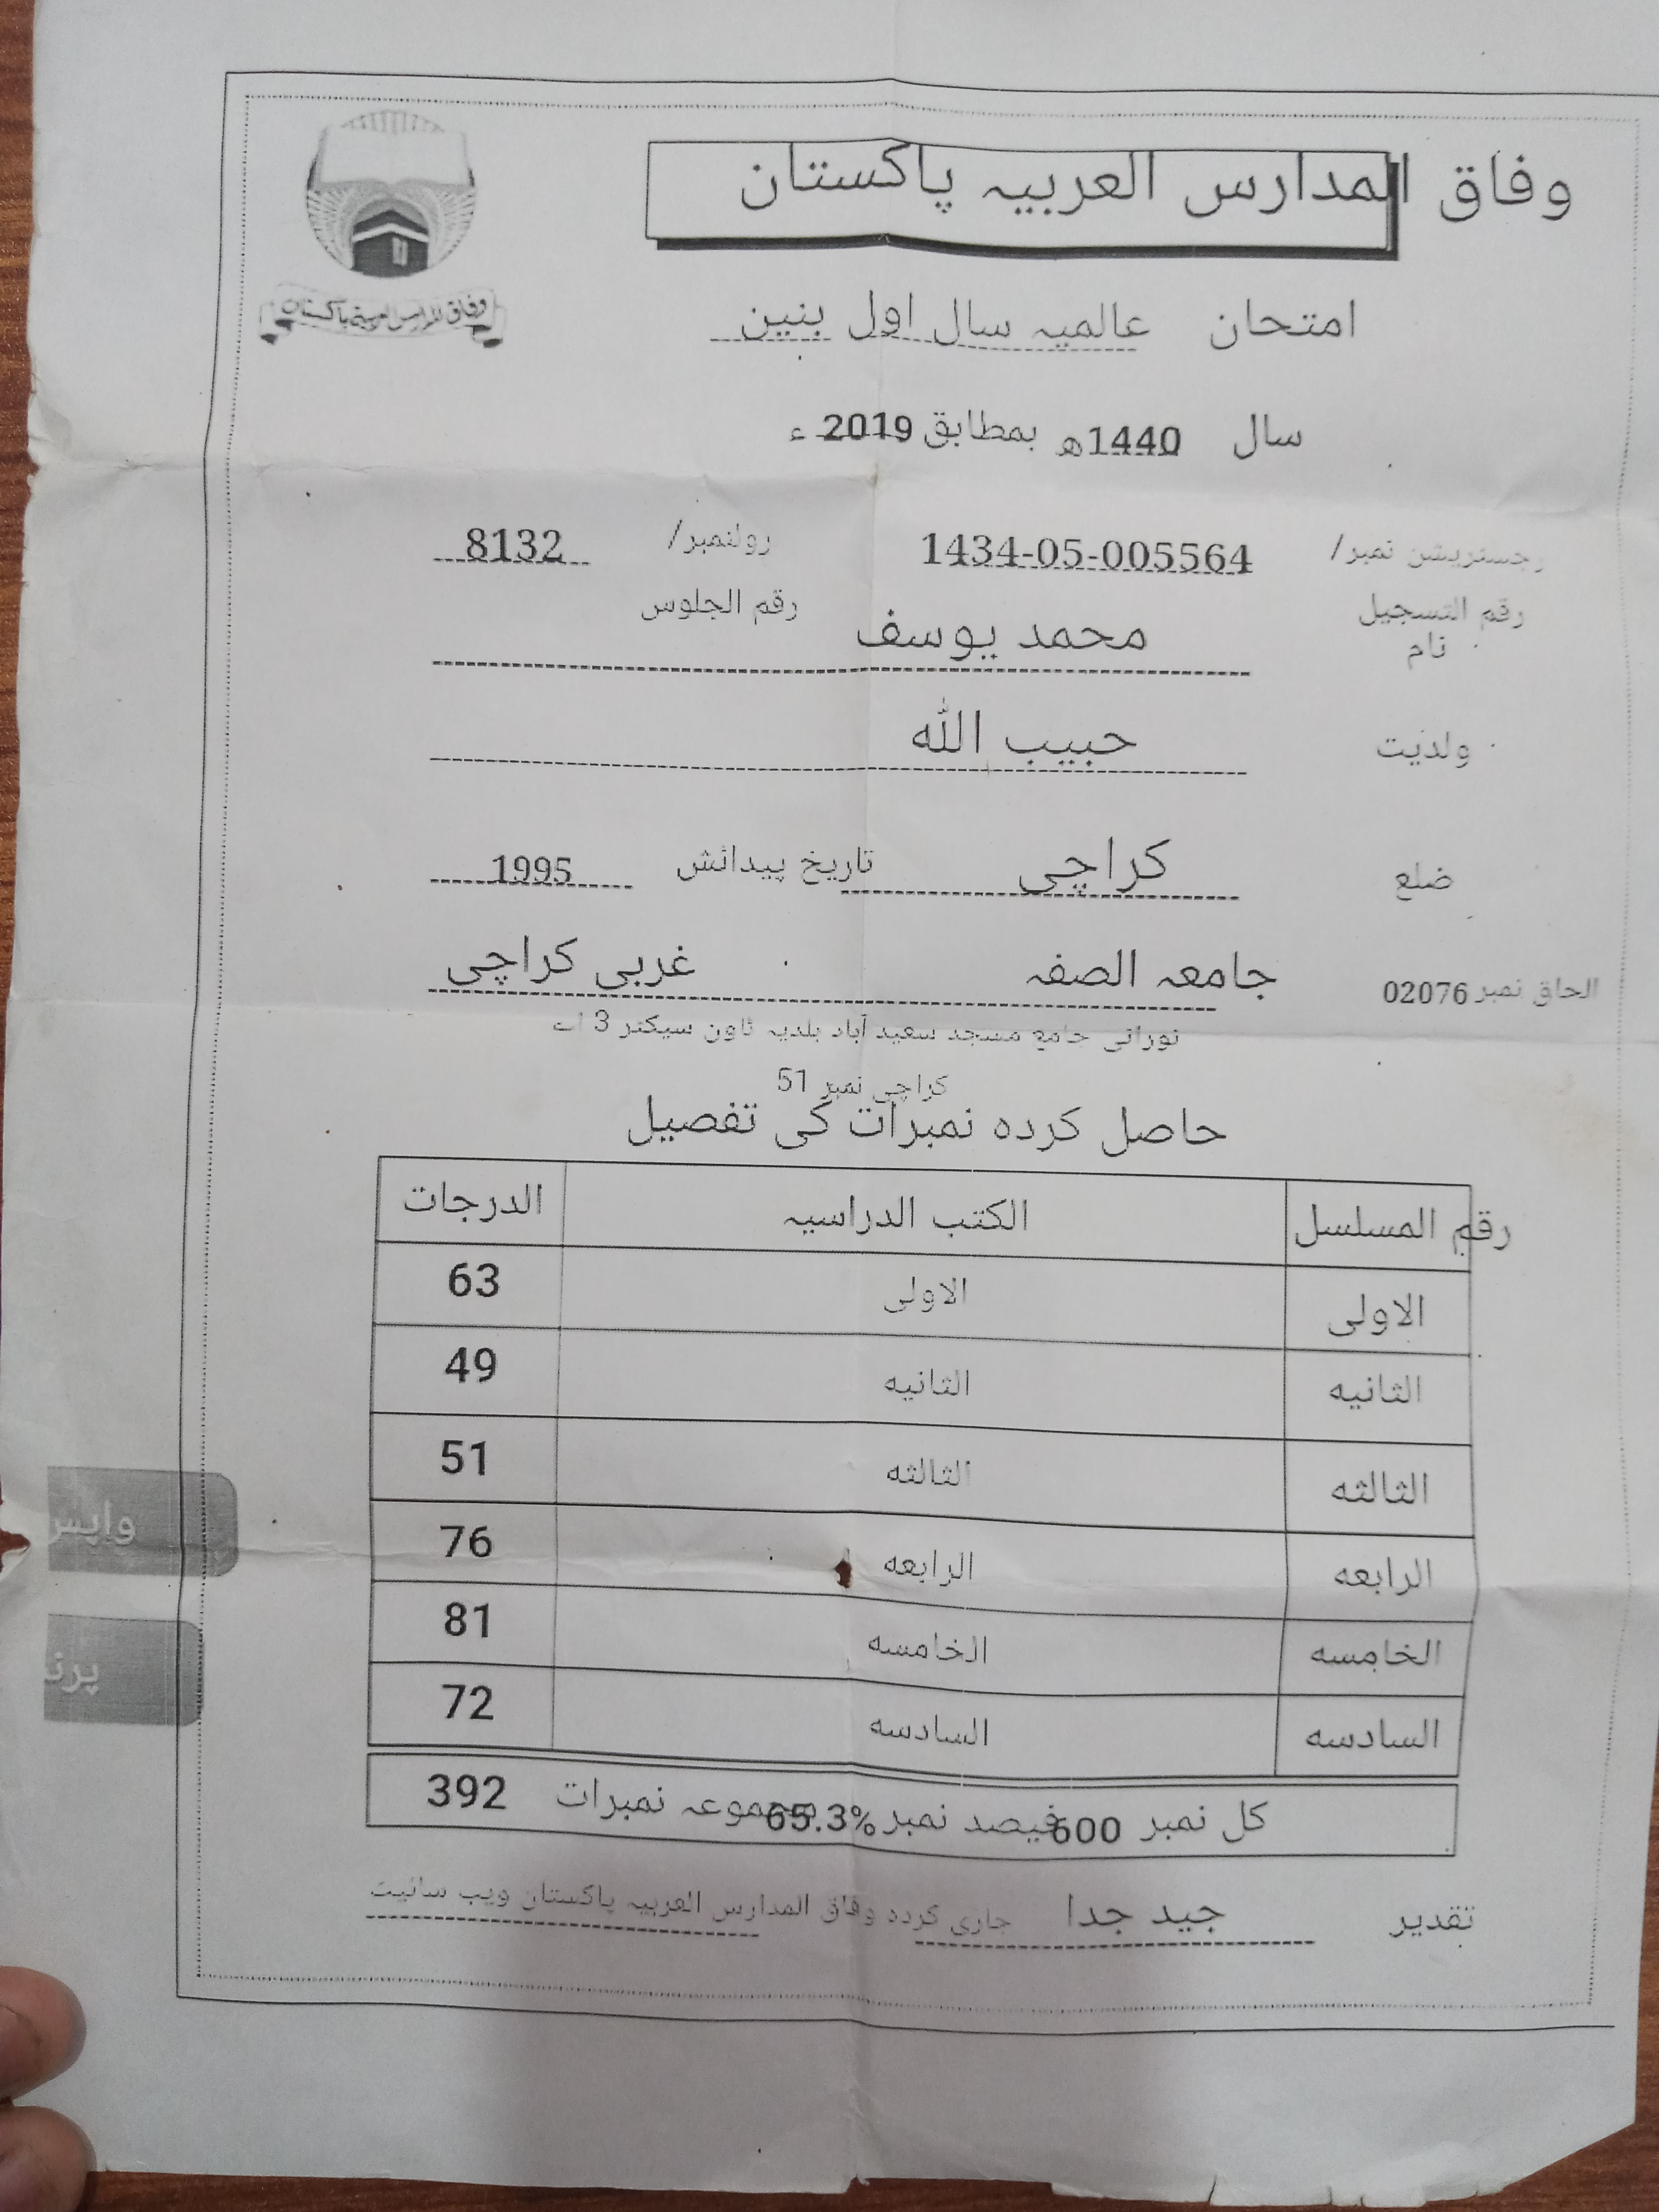 وفاق المدارس العربیہ پاکستان
وفاق المدارس العربیہ پاکستان
امتحان عالمیہ سال اول بنین
سال 1440ھ بمطابق 2019 ء
رجسٹریشن نمبر/ 1434-05-005564 رولنمبر/ 8132
رقم التسجیل رقم الجلوس
نام محمد یوسف
ولدیت حبیب اللہ
ضلع کراچی تاریخ پیدائش 1995
الحاق نمبر 02076 جامعہ الصفہ غربی کراچی
نورانی جامع مسجد سعید آباد بلدیہ ٹاون سیکٹر 3 اے
کراچی نمبر 51
حاصل کردہ نمبرات کی تفصیل
رقم المسلسل الکتب الدراسیہ الدرجات
الاولی الاولی 63
الثانیه الثانیه 49
الثالثه الثالثه 51
الرابعه الرابعه 76
الخامسه الخامسه 81
السادسه السادسه 72
کل نمبر 600 فیصد نمبر 65.3% مجموعہ نمبرات 392
تقدیر جید جدا جاری کردہ وفاق المدارس العربیہ پاکستان ویب سائیٹ
واپس
پرنٹ